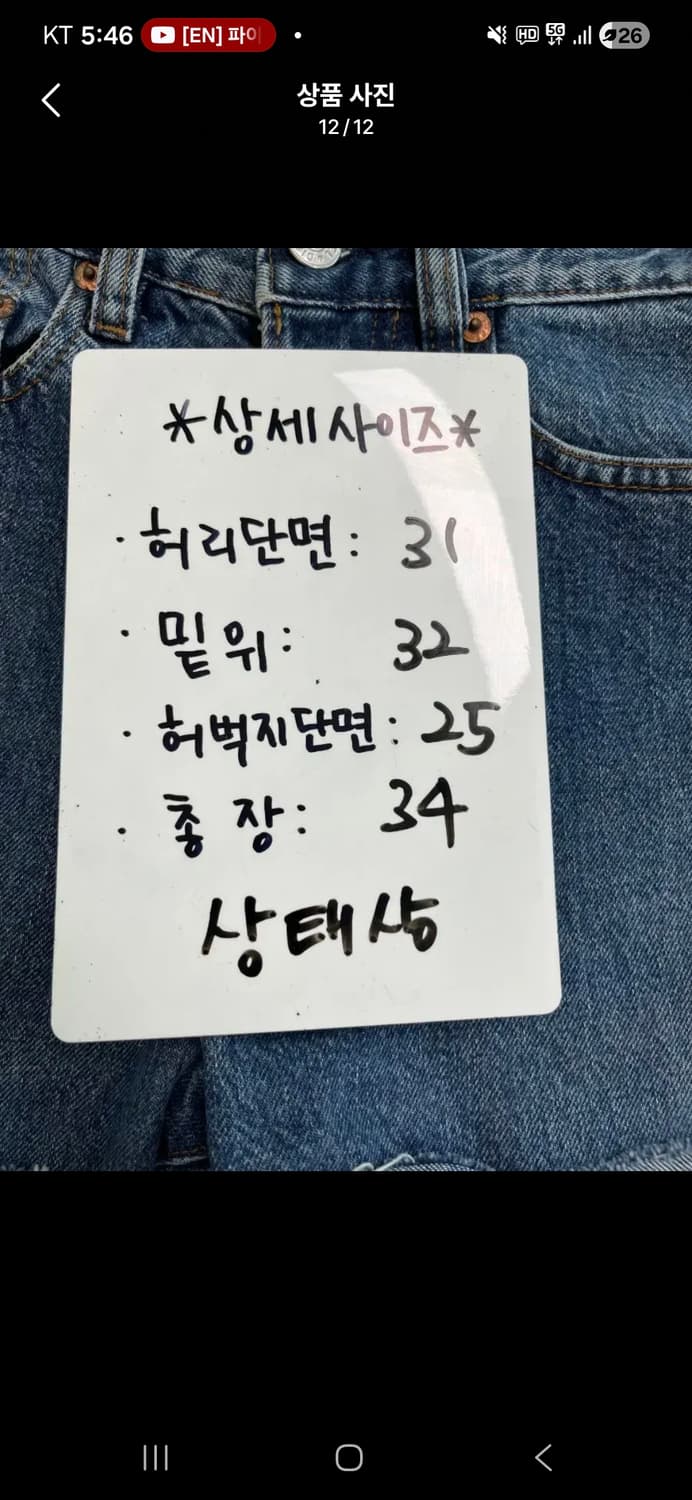 KT 5:46 [EN] 파이 HD 5G 26
상품 사진
12/12
*상세사이즈*
· 허리단면: 31
· 밑위: 32
· 허벅지단면: 25
· 총장: 34
상태상